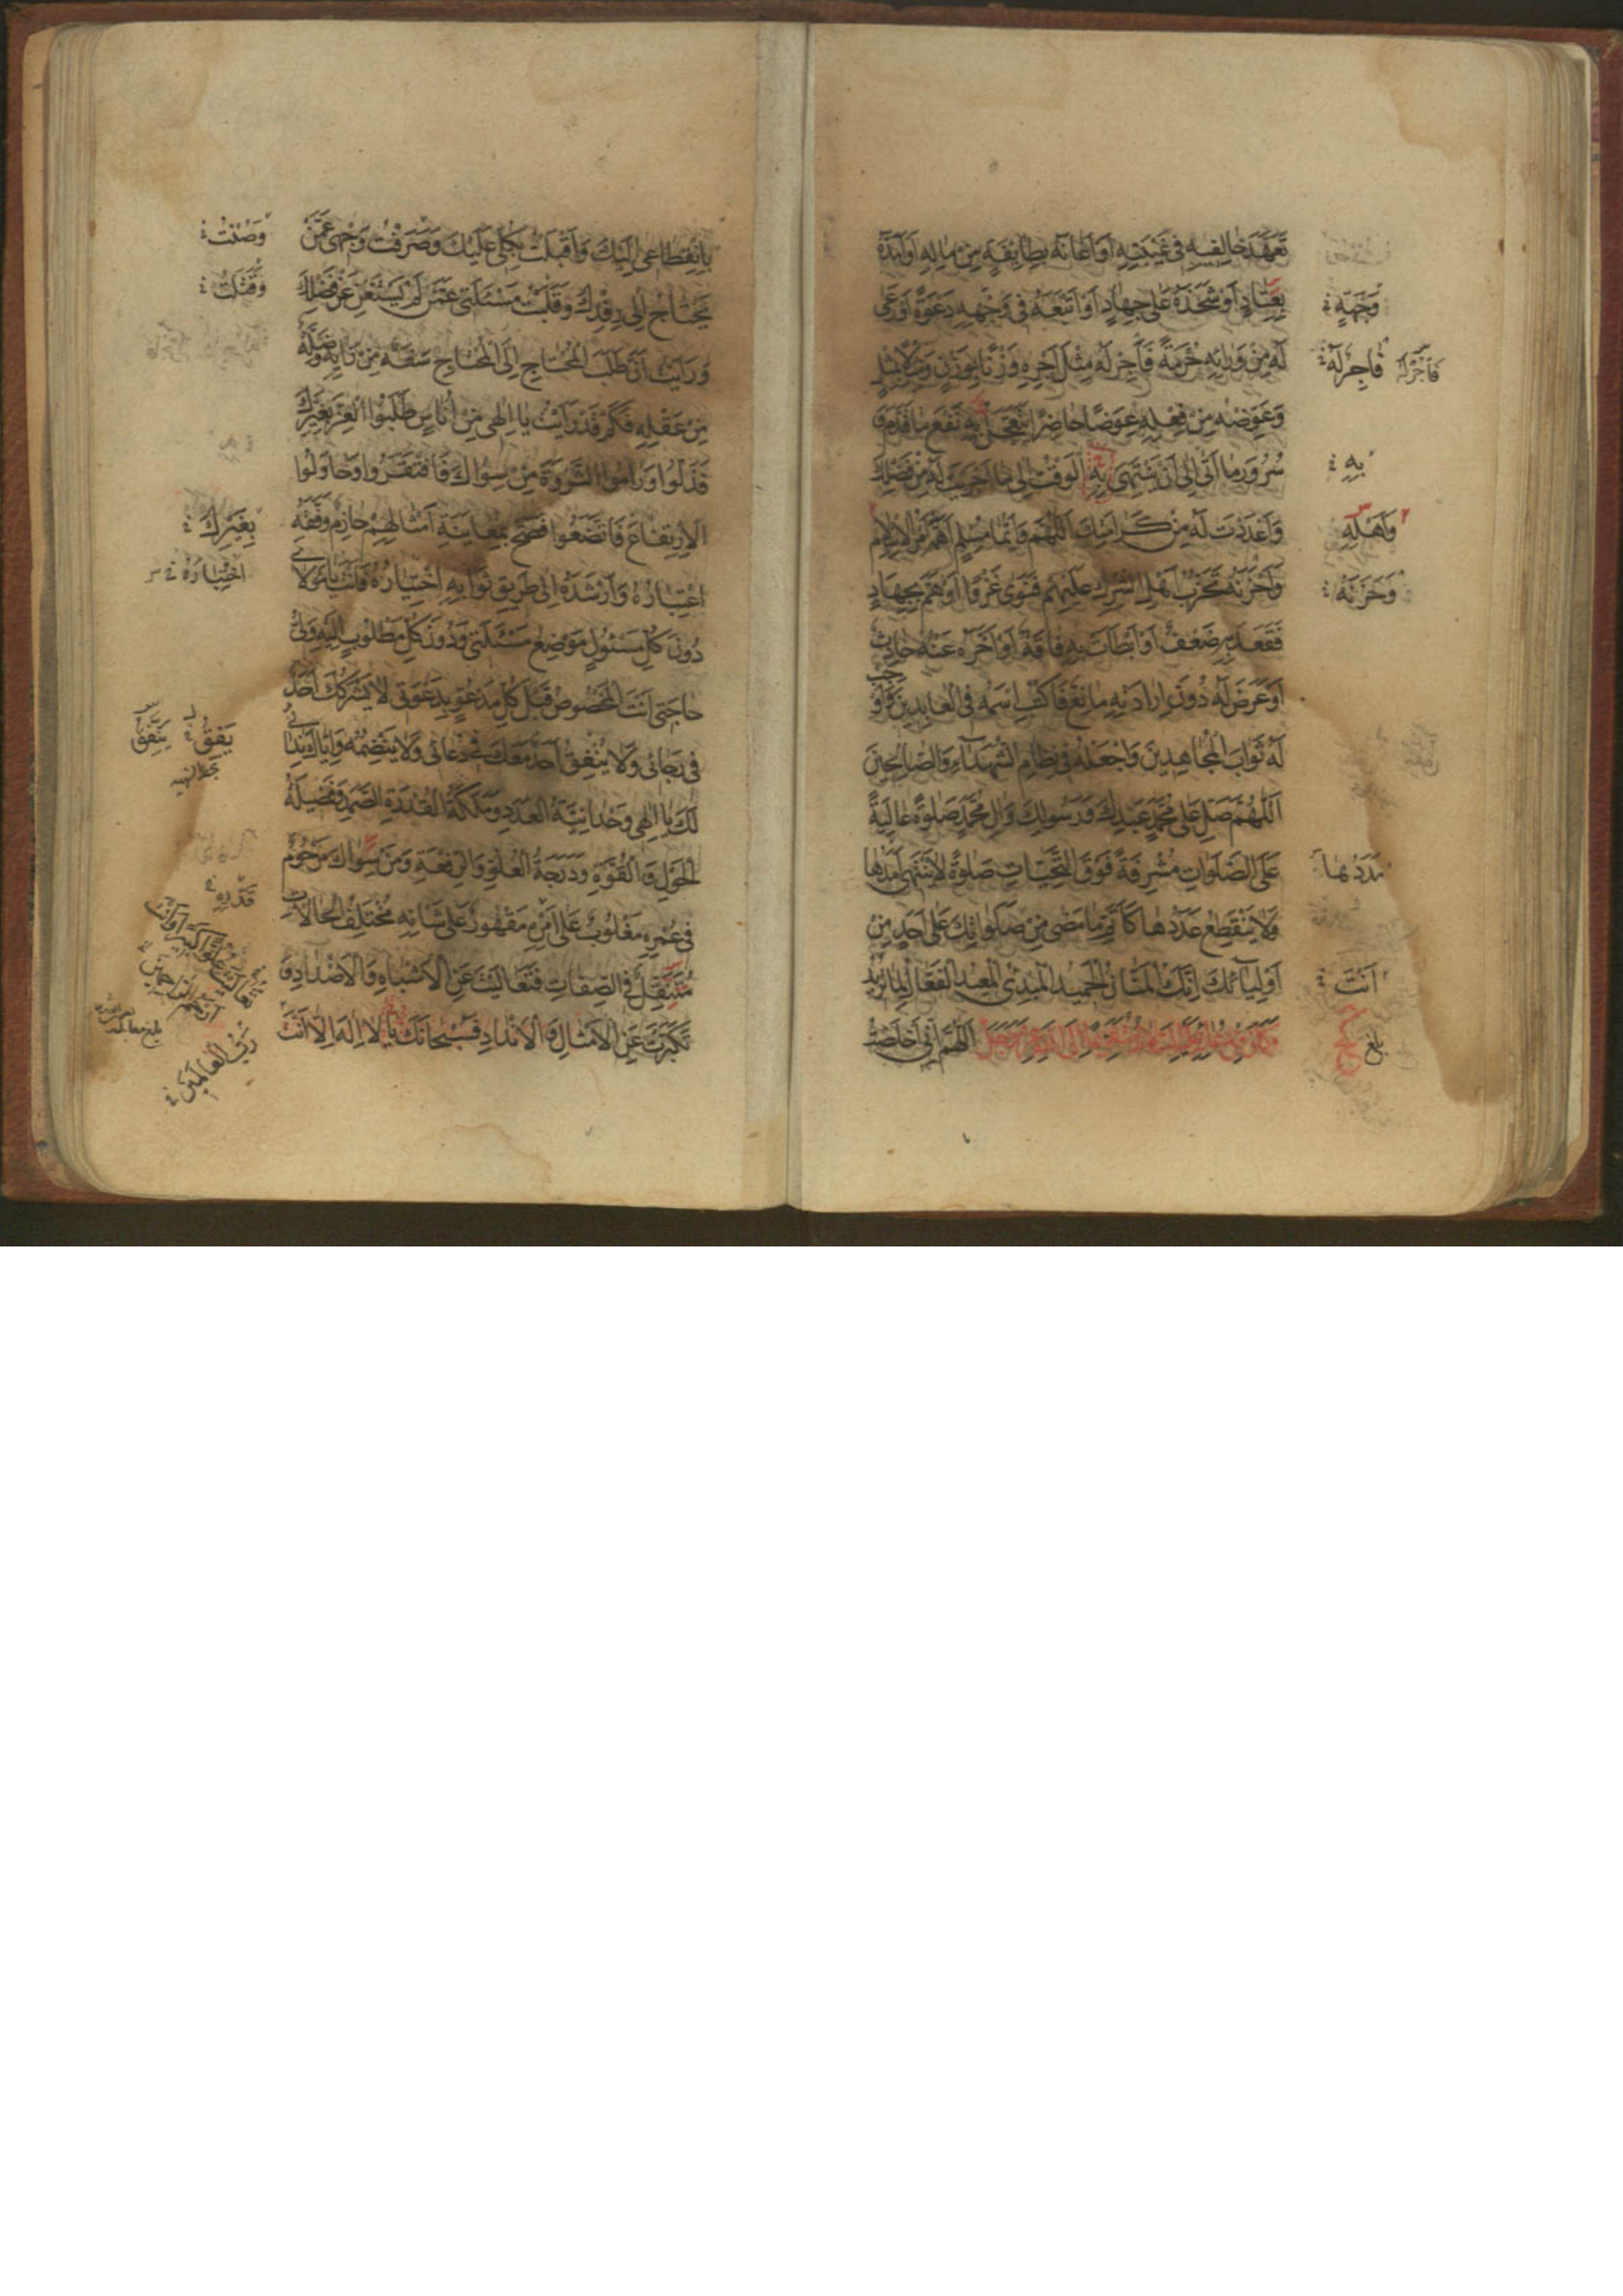 تَعَهَّدَ خَالِفِيهِ فِي غَيْبَتِهِ أَوْ أَعَانَهُ بِطَائِفَةٍ مِنْ مَالِهِ أَوْ أَمَدَّهُ
بِعِتَادٍ أَوْ شَحَذَهُ عَلَى جِهَادٍ أَوْ أَتْبَعَهُ فِي وَجْهِهِ دَعْوَةً أَوْ رَعَى
وَجْهَةٍ
لَهُ مِنْ وَرَائِهِ حُرْمَةً فَآجِرْ لَهُ مِثْلَ أَجْرِهِ وَزْنًا بِوَزْنٍ وَمِثْلًا بِمِثْلٍ
فَأَجِرْ لَهُ
وَعَوِّضْهُ مِنْ فِعْلِهِ عِوَضًا حَاضِرًا يَتَعَجَّلُ بِهِ نَفْعَ مَا قَدَّمَ وَ
سُرُورَ مَا أَتَى إِلَى أَنْ يَنْتَهِيَ بِهِ الْوَقْتُ إِلَى مَا أَجْرَيْتَ لَهُ مِنْ فَضْلِكَ
بِهِ
وَأَعْدَدْتَ لَهُ مِنْ كَرَامَتِكَ اللَّهُمَّ وَأَيُّمَا مُسْلِمٍ أَهَمَّهُ أَمْرُ الْإِسْلَامِ
وَأَحْزَنَهُ تَحَزُّبُ أَهْلِ الشِّرْكِ عَلَيْهِمْ فَنَوَى غَزْوًا أَوْ هَمَّ بِجِهَادٍ
وَحَزَنَهُ
فَقَعَدَ بِهِ ضَعْفٌ أَوْ أَبْطَأَتْ بِهِ فَاقَةٌ أَوْ أَخَّرَهُ عَنْهُ حَادِثٌ
أَوْ عَرَضَ لَهُ دُونَ إِرَادَتِهِ مَانِعٌ فَاكْتُبِ اسْمَهُ فِي الْعَابِدِينَ وَأَوْجِبْ
لَهُ ثَوَابَ الْمُجَاهِدِينَ وَاجْعَلْهُ فِي نِظَامِ الشُّهَدَاءِ وَالصَّالِحِينَ
اللَّهُمَّ صَلِّ عَلَى مُحَمَّدٍ عَبْدِكَ وَرَسُولِكَ وَآلِ مُحَمَّدٍ صَلَوةً عَالِيَةً
عَلَى الصَّلَوَاتِ مُشْرِفَةً فَوْقَ التَّحِيَّاتِ صَلَوةً لَا يَنْتَهِي أَمَدُهَا
مَدَدُهَا
وَلَا يَنْقَطِعُ عَدَدُهَا كَأَتَمِّ مَا مَضَى مِنْ صَلَوَاتِكَ عَلَى أَحَدٍ مِنْ
أَوْلِيَائِكَ إِنَّكَ الْمَنَّانُ الْحَمِيدُ الْمُبْدِئُ الْمُعِيدُ الْفَعَّالُ لِمَا تُرِيدُ
أَنْتَ
اللَّهُمَّ إِنِّي أَخْلَصْتُ
بلغ
بِانْقِطَاعِي إِلَيْكَ وَأَقْبَلْتُ بِكُلِّي عَلَيْكَ وَصَرَفْتُ وَجْهِي عَمَّنْ
وَصُنْتُ
يَحْتَاجُ إِلَى رِفْدِكَ وَقَلَبْتُ مَسْئَلَتِي عَمَّنْ لَمْ يَسْتَغْنِ عَنْ فَضْلِكَ
وَرَأَيْتُ أَنَّ طَلَبَ الْمُحْتَاجِ إِلَى الْمُحْتَاجِ سَفَهٌ مِنْ رَأْيِهِ وَضَلَّةٌ
مِنْ عَقْلِهِ فَكَمْ قَدْ رَأَيْتُ يَا إِلَهِي مِنْ أُنَاسٍ طَلَبُوا الْعِزَّ بِغَيْرِكَ
فَذَلُّوا وَرَامُوا الثَّرْوَةَ مِنْ سِوَاكَ فَافْتَقَرُوا وَحَاوَلُوا
الِارْتِفَاعَ فَاتَّضَعُوا فَصَحَّ بِمُعَايَنَةِ أَمْثَالِهِمْ حَازِمٌ وَفَّقَهُ
بِغَيْرِكَ
اعْتِبَارُهُ وَأَرْشَدَهُ إِلَى طَرِيقِ ثَوَابِهِ اخْتِيَارُهُ فَأَنْتَ يَا مَوْلَايَ
اخْتِيَارُهُ
دُونَ كُلِّ مَسْئُولٍ مَوْضِعُ مَسْئَلَتِي وَدُونَ كُلِّ مَطْلُوبٍ إِلَيْهِ وَلِيُّ
حَاجَتِي أَنْتَ الْمَخْصُوصُ قَبْلَ كُلِّ مَدْعُوٍّ بِدَعْوَتِي لَا يَشْرَكُكَ أَحَدٌ
فِي رَجَائِي وَلَا يَتَّفِقُ أَحَدٌ مَعَكَ فِي دُعَائِي وَلَا يَنْظِمُهُ وَإِيَّاكَ نِدَائِي
يَفِقُ يَتَّفِقُ
لَكَ يَا إِلَهِي وَحْدَانِيَّةُ الْعَدَدِ وَمَلَكَةُ الْقُدْرَةِ الصَّمَدِ وَفَضِيلَةُ
الْحَوْلِ وَالْقُوَّةِ وَدَرَجَةُ الْعُلُوِّ وَالرِّفْعَةِ وَمَنْ سِوَاكَ مَرْحُومٌ
فِي عُمْرِهِ مَغْلُوبٌ عَلَى أَمْرِهِ مَقْهُورٌ عَلَى شَأْنِهِ مُخْتَلِفُ الْحَالَاتِ
مُتَنَقِّلٌ فِي الصِّفَاتِ فَتَعَالَيْتَ عَنِ الْأَشْبَاهِ وَالْأَضْدَادِ وَ
تَكَبَّرْتَ عَنِ الْأَمْثَالِ وَالْأَنْدَادِ فَسُبْحَانَكَ لَا إِلَهَ إِلَّا أَنْتَ
رَبَّ الْعَالَمِينَ